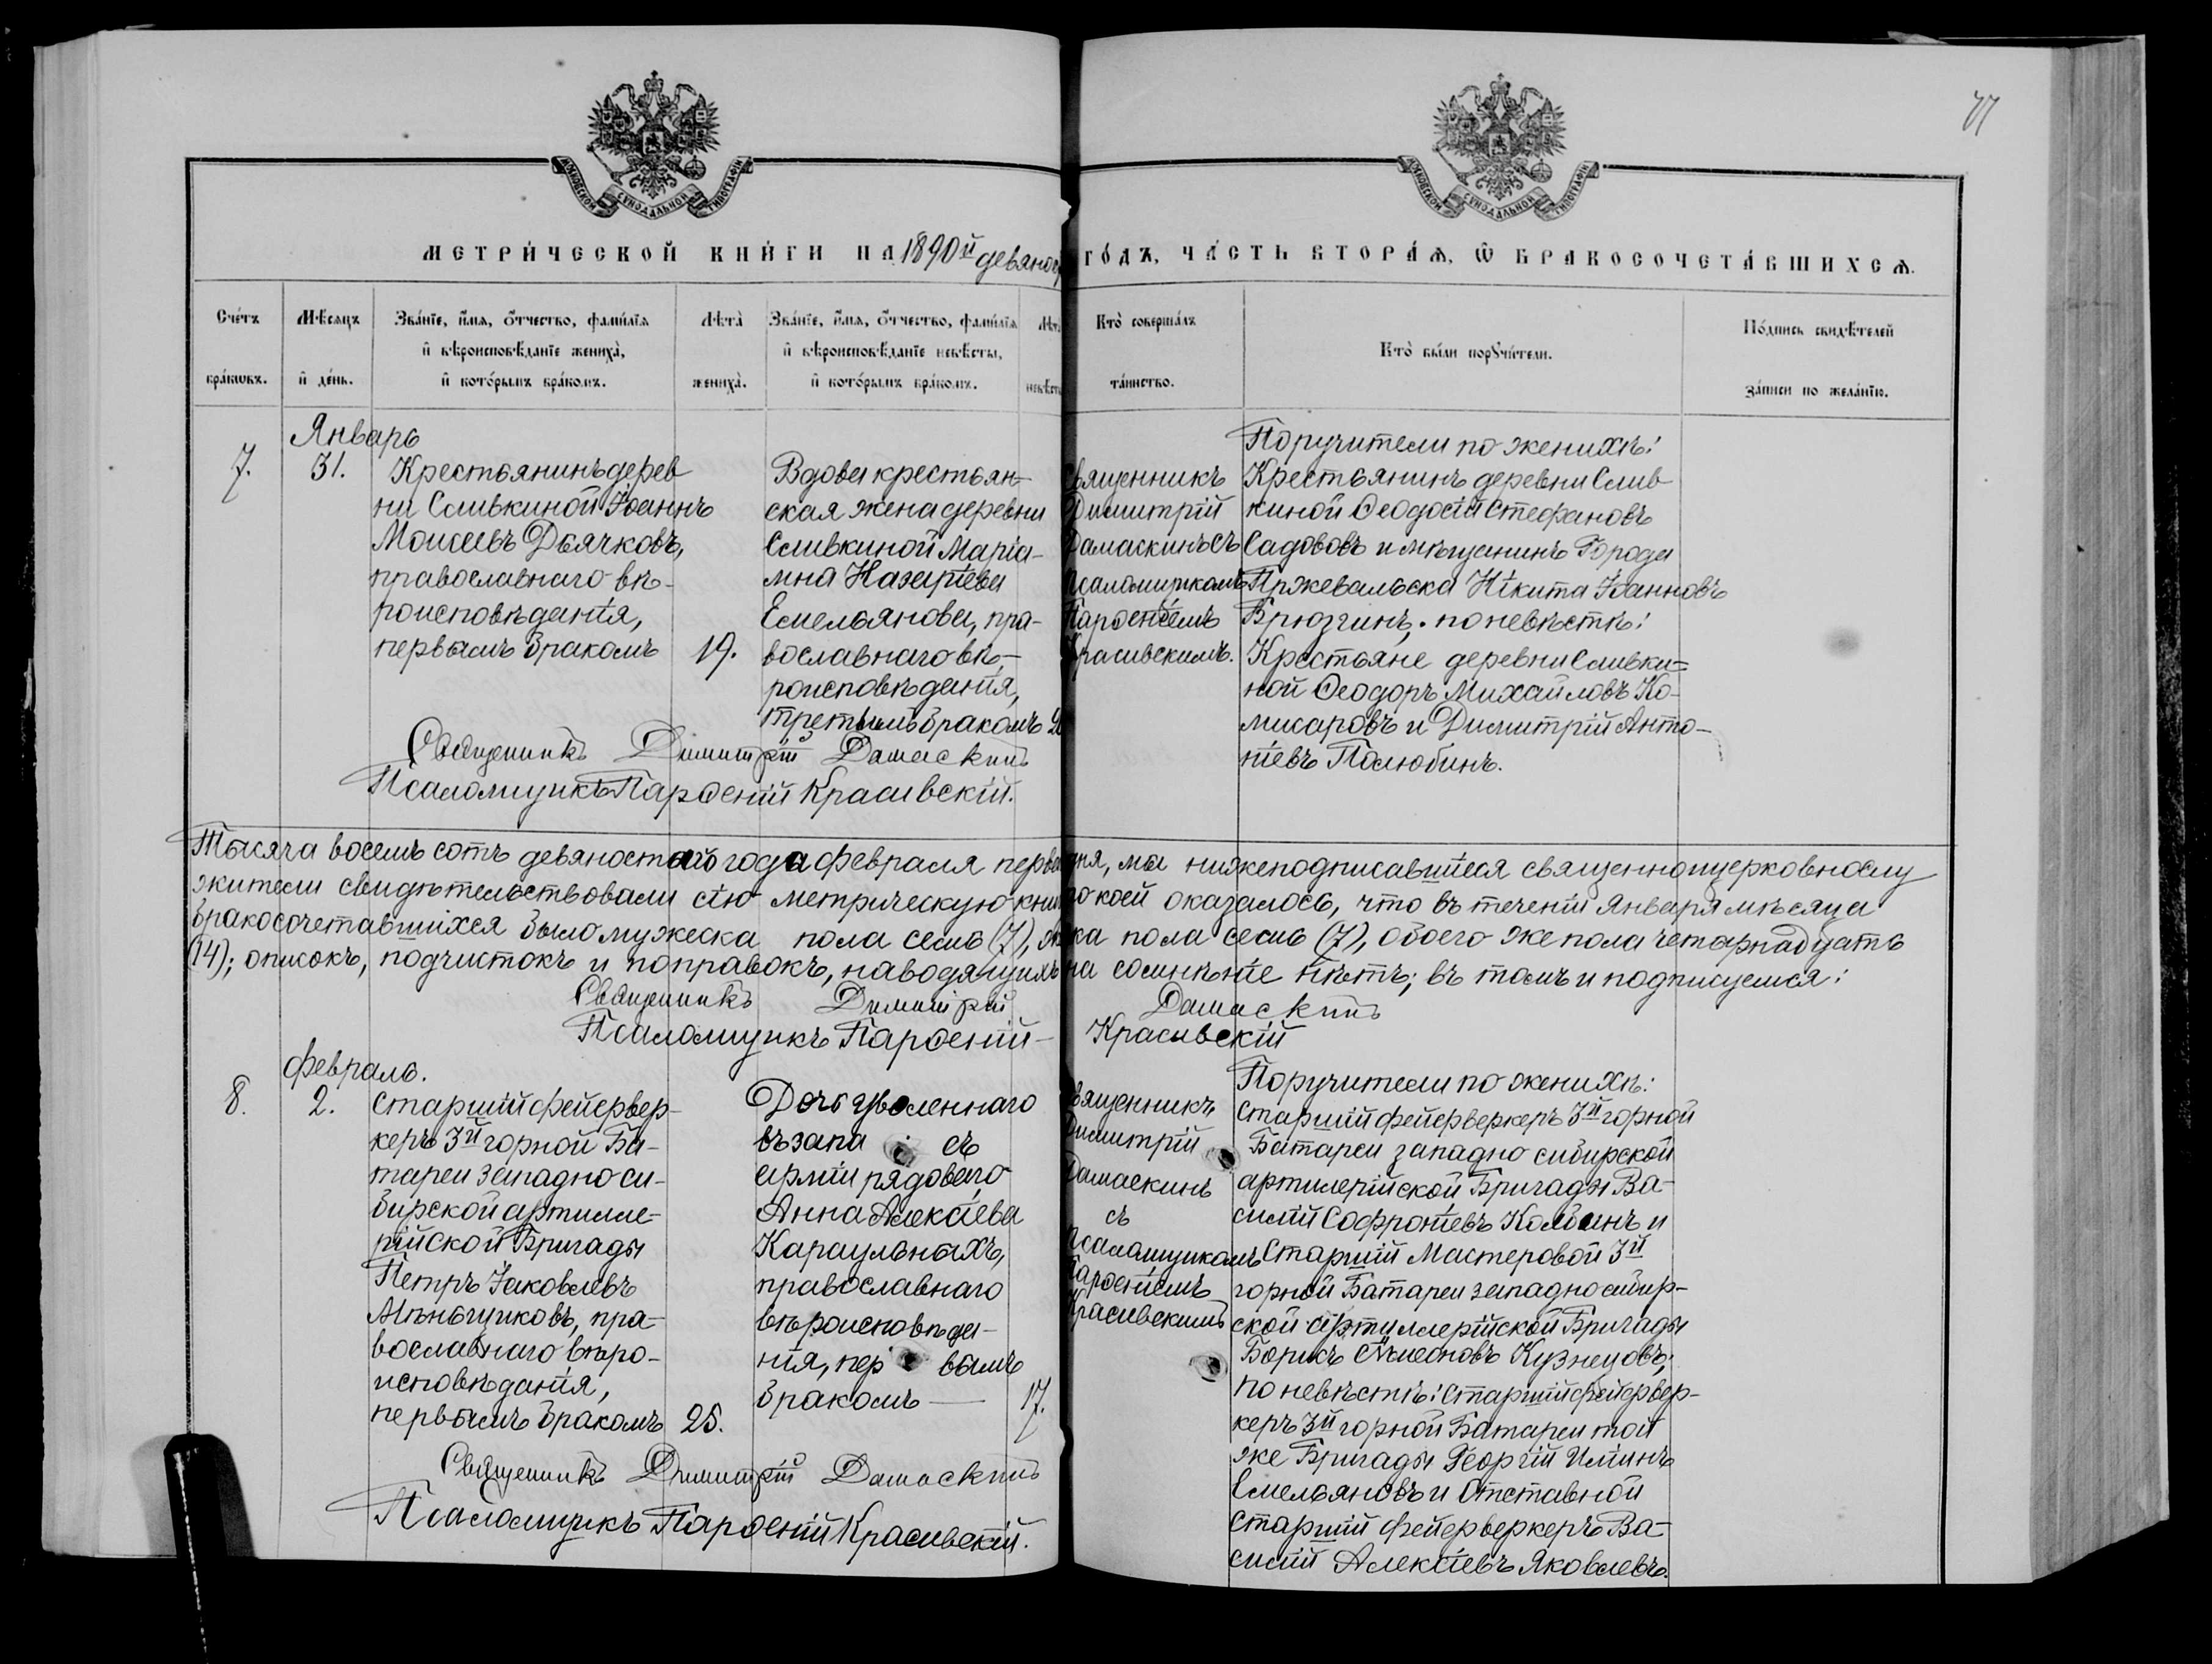 71
МОСКОВСКОЙ СѴНОДАЛЬНОЙ ТИПОГРАФІИ
МОСКОВСКОЙ СѴНОДАЛЬНОЙ ТИПОГРАФІИ
МЕТРИ́ЧЕСКОЙ КНИ́ГИ НА 1890й девяно
ГО́ДЪ, ЧА́СТЬ ВТОРА́Ѧ, Ѿ БРАКОСОЧЕТА́ВШИХСѦ.
Сче́тъ
бра́кѡвъ.
Мѣ́сѧцъ
и҆ де́нь.
Зва́нїе, и҆́мѧ, ѻ҆́тчество, фамі́лїѧ
и҆ вѣроисповѣ́данїе жениха̀,
и҆ кото́рымъ бра́комъ.
Лѣта̀
жениха̀.
Зва́нїе, и҆́мѧ, ѻ҆́тчество, фамі́лїѧ
и҆ вѣроисповѣ́данїе невѣ́сты,
и҆ кото́рымъ бра́комъ.
Лѣт
невѣст
Кто̀ соверша́лъ
та́инство.
Кто̀ бы́ли порꙋчи́тели.
По́дпись свидѣ́телей
за́писи по жела́нїю.
Январь
7.
31.
Крестьянинъ дерев
ни Сливкиной Іоаннъ
Моисеевъ Дьячковъ,
православнаго вѣ-
роисповѣданія,
первымъ бракомъ
19.
Вдова крестьян-
ская жена деревни
Сливкиной Маріа-
мна Назаріева
Емельянова, пра-
вославнаго вѣ-
роисповѣданія,
третьимъ бракомъ
Священникъ
Димитрій
Дамаскинъ съ
псаломщикомъ
Парѳеніемъ
Красивскимъ.
Поручители по женихѣ:
Крестьянинъ деревни Слив-
киной Ѳеодосій Стефановъ
Садововъ и мѣщанинъ города
Пржевальска Никита Іоанновъ
Брюзгинъ. по невѣстѣ:
Крестьяне деревни Сливки-
ной Ѳеодоръ Михайловъ Ко-
мисаровъ и Димитрій Анто-
ніевъ Полюбинъ.
Священникъ Димитрій Дамаскинъ
Псаломщикъ Парѳеній Красивскій.
Тысяча восемь сотъ девяностаго года февраля перва дня, мы нижеподписавшіеся священноцерковнослу
жители свидѣтельствовали сію метрическую книгу по коей оказалось, что въ теченіи Января мѣсяца
бракосочетавшихся было мужеска пола семь (7), женска пола семь (7), обоего же пола четырнадцать
(14); описокъ, подчистокъ и поправокъ, наводящихъ на сомнѣніе нѣтъ; въ томъ и подписуемся:
Священникъ Димитрій Дамаскинъ
Псаломщикъ Парѳеній - Красивскій
февраль.
8.
2.
Старшій фейервер-
керъ 3й горной Ба-
тареи западно си-
бирской артилле-
рійской бригады
Петръ Іаковлевъ
Мѣньщиковъ, пра-
вославнаго вѣро-
исповѣданія,
первымъ бракомъ
25.
Дочь уволеннаго
въ запасъ
арміи рядового
Анна Алексіева
Караульныхъ,
православнаго
вѣроисповѣда-
нія, первымъ
бракомъ —
17.
Священникъ
Димитрій
Дамаскинъ
съ
псаломщикомъ
Парѳеніемъ
Красивскимъ
Поручители по женихѣ:
старшій фейерверкеръ 3й горной
Батареи западно сибирской
артилерійской бригады Ва-
силій Софроніевъ Колбинъ и
Старшій Мастеровой 3й
горной Батареи западно сибир-
ской артиллерійской бригады
Борисъ Симеоновъ Кузнецовъ;
по невѣстѣ: старшій фейервер-
керъ 3й горной Батареи той
же бригады Георгій Илiинъ
Емельяновъ и Отставной
старшій фейерверкеръ Ва-
силій Алексіевъ Яковлевъ.
Священникъ Димитрій Дамаскинъ
Псаломщикъ Парѳеній Красивскій.